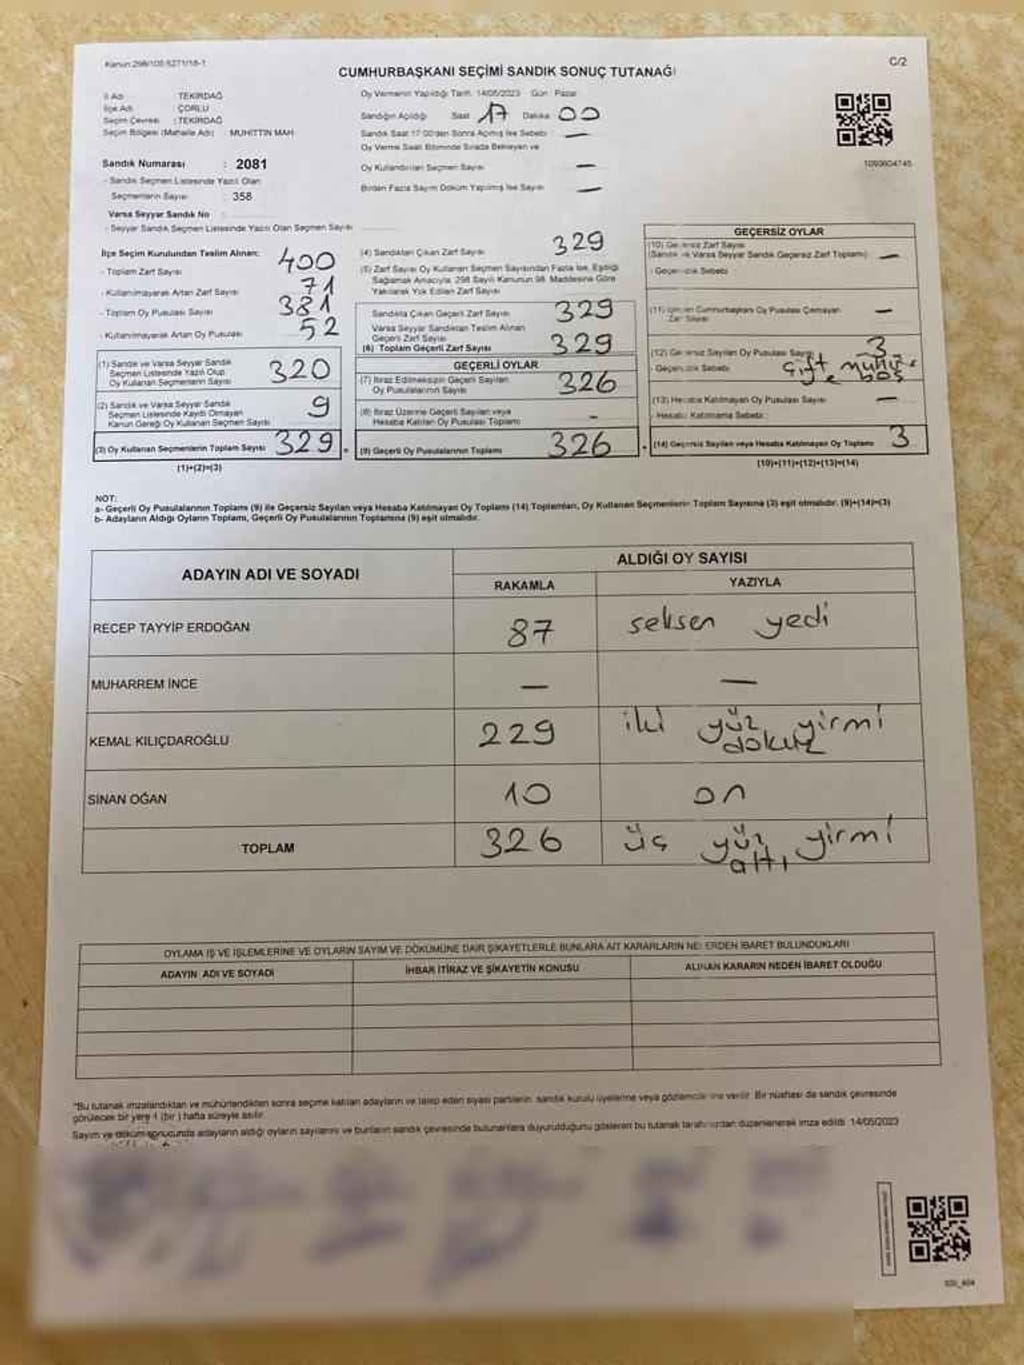 Kanun:298/105 6271/18-1
C/2
CUMHURBAŞKANI SEÇİMİ SANDIK SONUÇ TUTANAĞI
İl Adı : TEKİRDAĞ
İlçe Adı : ÇORLU
Seçim Çevresi : TEKİRDAĞ
Seçim Bölgesi (Mahalle Adı) : MUHİTTİN MAH.
Sandık Numarası : 2081
- Sandık Seçmen Listesinde Yazılı Olan
Seçmenlerin Sayısı 358
Varsa Seyyar Sandık No
- Seyyar Sandık Seçmen Listesinde Yazılı Olan Seçmen Sayısı
Oy Vermenin Yapıldığı Tarih 14/05/2023 Gün : Pazar
Sandığın Açıldığı Saat 17 Dakika 00
Sandık Saat 17:00'den Sonra Açılmış İse Sebebi —
Oy Verme Saati Bitiminde Sırada Bekleyen ve
Oy Kullandırılan Seçmen Sayısı —
Birden Fazla Sayım Döküm Yapılmış İse Sayısı —
1093604745
İlçe Seçim Kurulundan Teslim Alınan:
- Toplam Zarf Sayısı 400
- Kullanılmayarak Artan Zarf Sayısı 71
- Toplam Oy Pusulası Sayısı 381
- Kullanılmayarak Artan Oy Pusulası 52
(1) Sandık ve Varsa Seyyar Sandık
Seçmen Listesinde Yazılı Olup
Oy Kullanan Seçmenlerin Sayısı 320
(2) Sandık ve Varsa Seyyar Sandık
Seçmen Listesinde Kaydı Olmayan
Kanun Gereği Oy Kullanan Seçmen Sayısı 9
(3) Oy Kullanan Seçmenlerin Toplam Sayısı 329
(1)+(2)=(3)
(4) Sandıktan Çıkan Zarf Sayısı 329
(5) Zarf Sayısı Oy Kullanan Seçmen Sayısından Fazla İse, Eşitliği
Sağlamak Amacıyla, 298 Sayılı Kanunun 98. Maddesine Göre
Yakılarak Yok Edilen Zarf Sayısı
Sandıkta Çıkan Geçerli Zarf Sayısı 329
Varsa Seyyar Sandıktan Teslim Alınan
Geçerli Zarf Sayısı
(6) Toplam Geçerli Zarf Sayısı 329
GEÇERLİ OYLAR
(7) İtiraz Edilmeksizin Geçerli Sayılan
Oy Pusulasının Sayısı 326
(8) İtiraz Üzerine Geçerli Sayılan veya
Hesaba Katılan Oy Pusulası Toplamı -
(9) Geçerli Oy Pusulalarının Toplamı 326
GEÇERSİZ OYLAR
(10) Geçersiz Zarf Sayısı
(Sandık ve Varsa Seyyar Sandık Geçersiz Zarf Toplamı) —
- Geçersizlik Sebebi
(11) İçinden Cumhurbaşkanı Oy Pusulası Çıkmayan
Zarf Sayısı —
(12) Geçersiz Sayılan Oy Pusulası Sayısı 3
- Geçersizlik Sebebi Çift mühür
boş
(13) Hesaba Katılmayan Oy Pusulası Sayısı —
- Hesaba Katılmama Sebebi
(14) Geçersiz Sayılan veya Hesaba Katılmayan Oy Toplamı 3
(10)+(11)+(12)+(13)=(14)
NOT:
a- Geçerli Oy Pusulalarının Toplamı (9) ile Geçersiz Sayılan veya Hesaba Katılmayan Oy Toplamı (14) Toplamları, Oy Kullanan Seçmenlerin Toplam Sayısına (3) eşit olmalıdır. (9)+(14)=(3)
b- Adayların Aldığı Oyların Toplamı, Geçerli Oy Pusulalarının Toplamına (9) eşit olmalıdır.
ADAYIN ADI VE SOYADI
ALDIĞI OY SAYISI
RAKAMLA YAZIYLA
RECEP TAYYİP ERDOĞAN 87 seksen yedi
MUHARREM İNCE — —
KEMAL KILIÇDAROĞLU 229 iki yüz yirmi
dokuz
SİNAN OĞAN 10 on
TOPLAM 326 üç yüz yirmi
altı
OYLAMA İŞ VE İŞLEMLERİNE VE OYLARIN SAYIM VE DÖKÜMÜNE DAİR ŞİKAYETLERLE BUNLARA AİT KARARLARIN NELERDEN İBARET BULUNDUKLARI
ADAYIN ADI VE SOYADI İHBAR İTİRAZ VE ŞİKAYETİN KONUSU ALINAN KARARIN NEDEN İBARET OLDUĞU
*Bu tutanak imzalandıktan ve mühürlendikten sonra seçime katılan adayların ve talep eden siyasi partilerin sandık kurulu üyelerine veya gözlemcilerine verilir. Bir nüshası da sandık çevresinde
görülecek bir yere 1 (bir) hafta süreyle asılır.
Sayım ve döküm sonucunda adayların aldığı oyların sayılarını ve bunların sandık çevresinde bulunanlara duyurulduğunu gösteren bu tutanak tarafımızdan düzenlenerek imza edildi. 14/05/2023